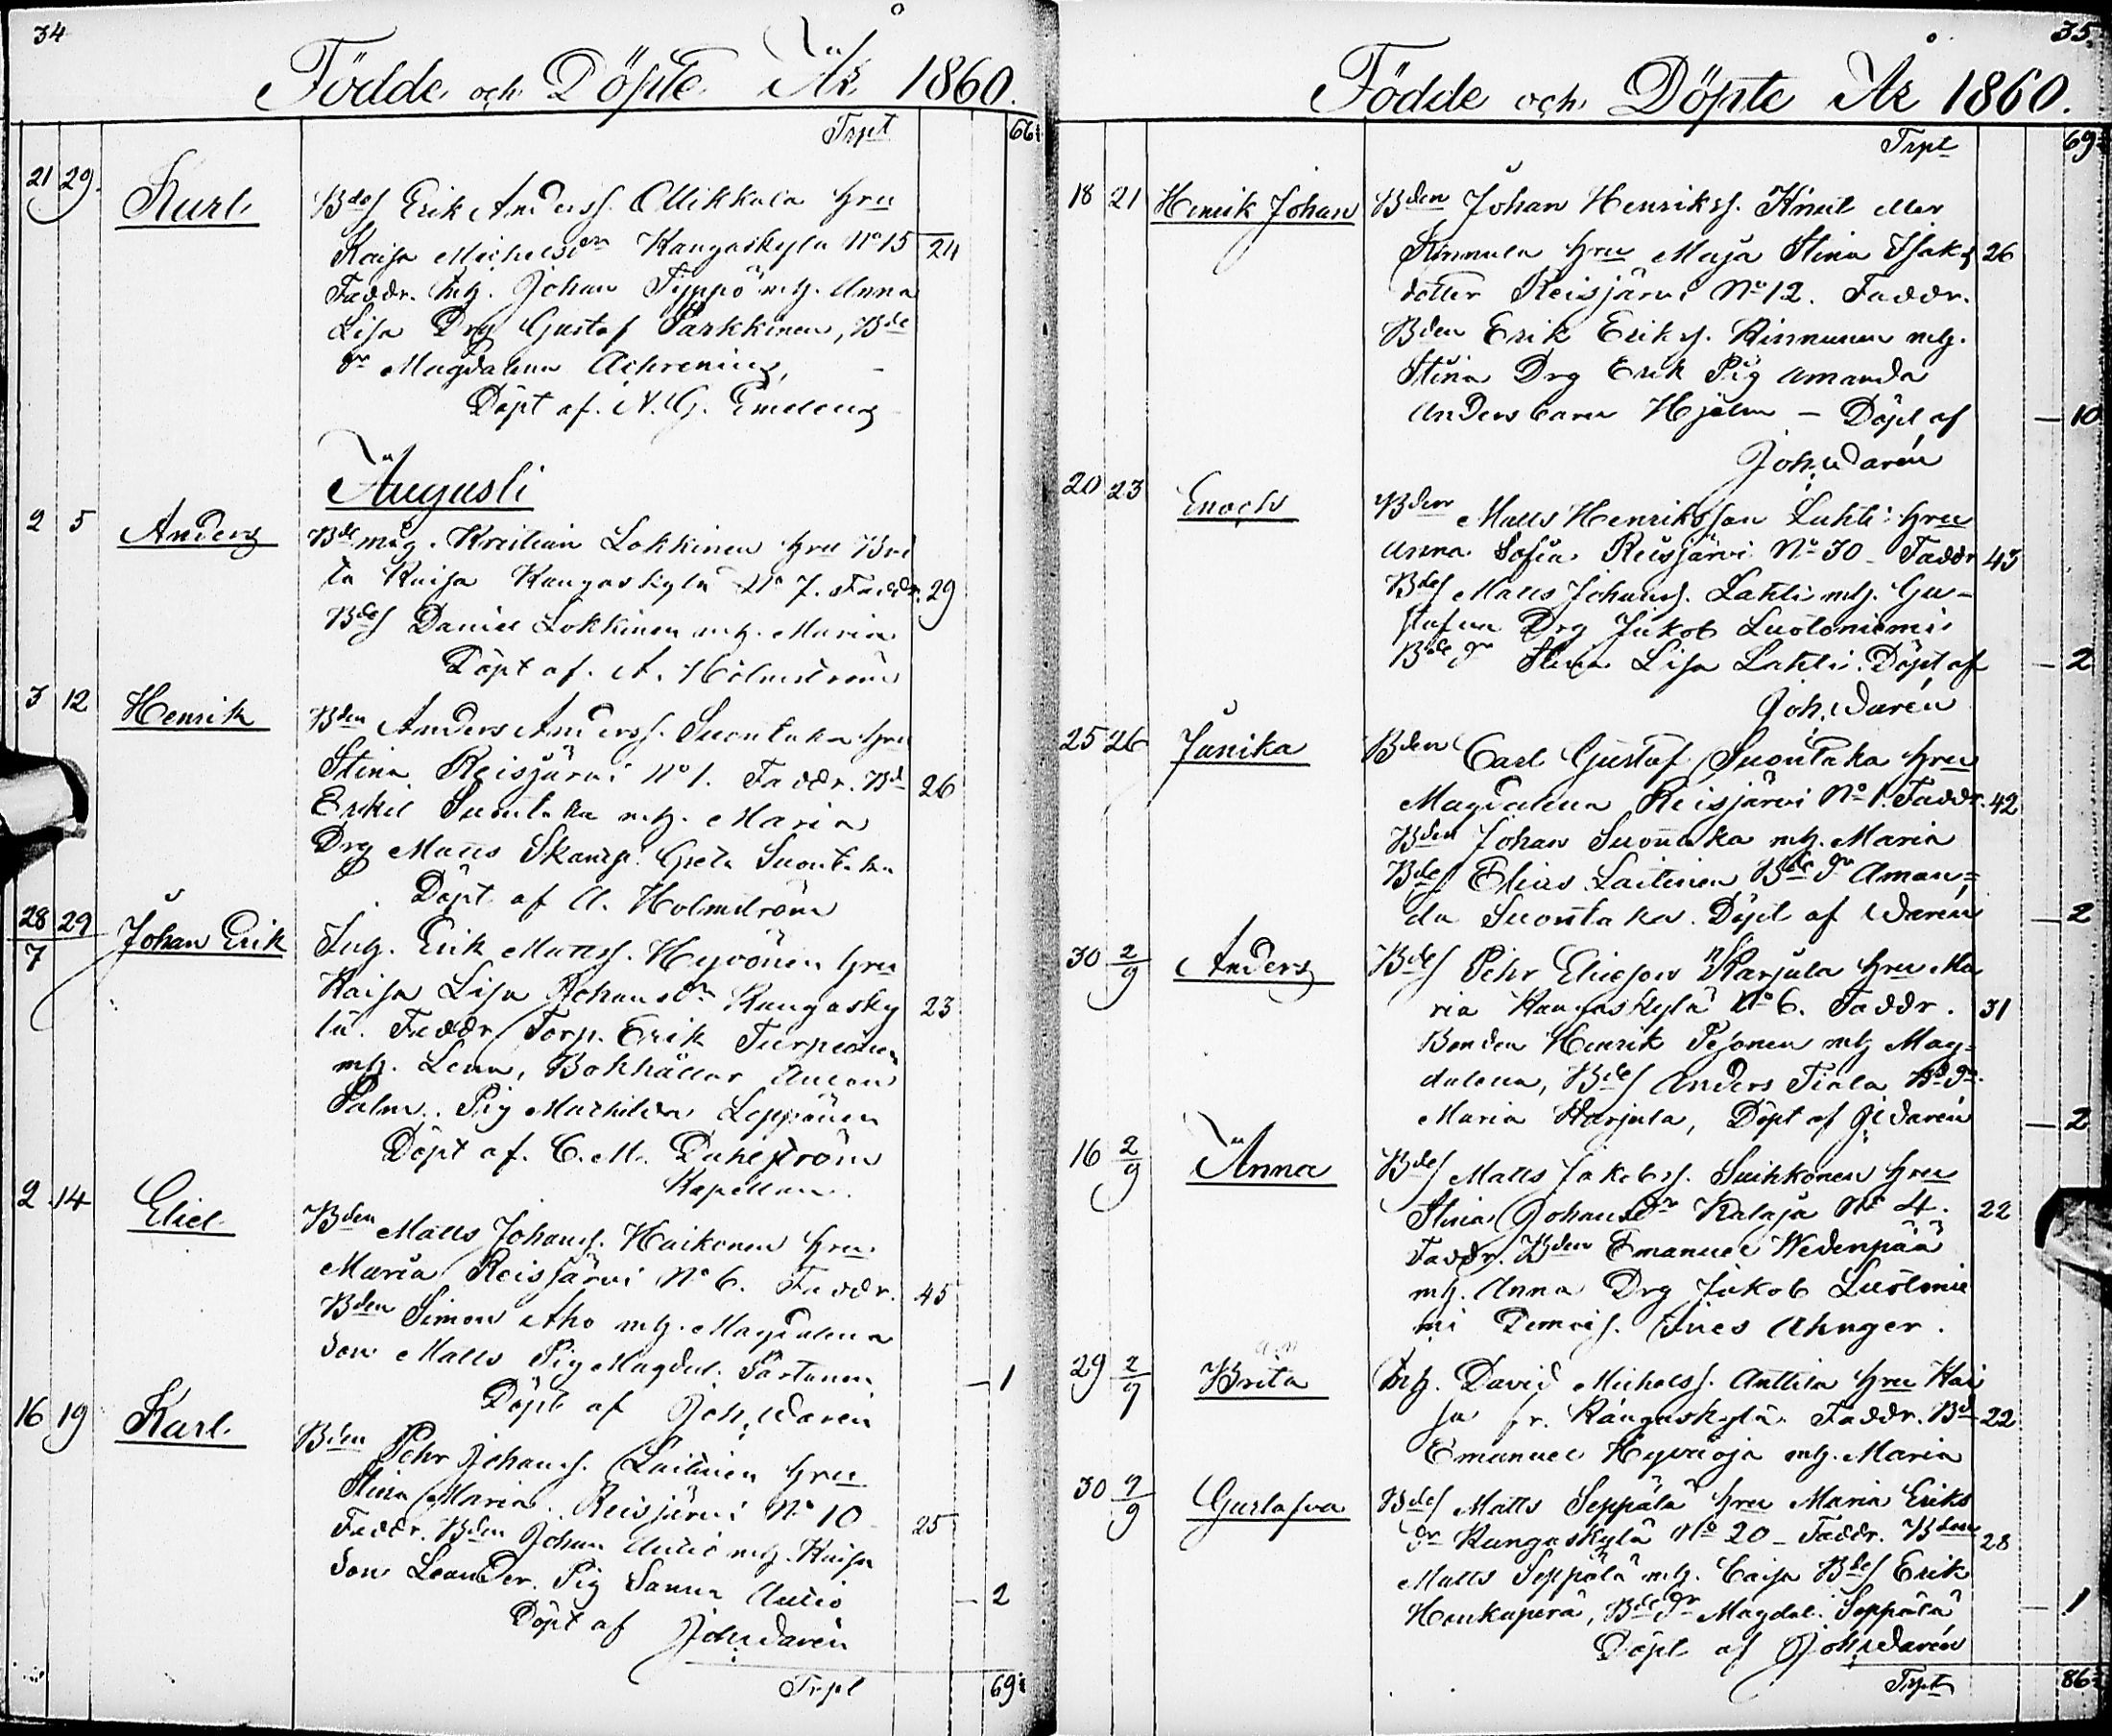 34
Födde och Döpte År 1860.
Trpt 66
21 29 Karl Bdes Erik Anderss. Mikkola hru
Kaisa Michelsdr Kangaskylä No 15 24
Faddr. Inh. Johan Typpö mh. Anna
Lisa Drg Gustaf Parkkinen, Bde
dr Magdalena Achrenius,
Döpt af. N. G. Emeleus
Augusti
2 5 Anders Bdemåg. Kristian Lokkinen hru Bri
ta Kaisa Kangaskylä No 7. Faddr. 29
Bdes Daniel Lokkinen mh. Maria
Döpt af. A. Holmström
3 12 Henrik Bden Anders Anderss. Suontaka hru
Stina Reisjärvi No 1. Faddr. Bd 26
Eskil Suontaka mh. Maria
Drg Matts Skantz. Greta Suontaka
Döpt af A. Holmström
28/7 29 Johan Erik Inh. Erik Mattss. Hyvönen hru
Kaisa Lisa Johansdr Kangasky 23
lä. Faddr Torp. Erik Turpeinen
mh. Lena, Bokhållar Anton
Palm. Pig Mathilda Leppänen
Döpt af. C. M. Dahlström
Kapellan.
2 14 Eliel Bden Matts Johanss. Haikonen hru
Maria Reisjärvi No 6. Faddr. 45
Bden Simon Aho mh. Magdalena
Son Matts Pig Magdal. Partanen — 1
Döpt af Joh. Warén
16 19 Karl Bden Pehr Johanss. Laitinen hru
Stina Maria. Reisjärvi No 10 25
Faddr. Bden Johan Autio mh. Kaisa
Son Leander. Pig Sanna Autio — 2
Döpt af Joh. Warén
Trpt 69
35.
Födde och Döpte År 1860.
Trpt 69
18 21 Henrik Johan Bden Johan Henrikss. Knut eller
Kinnula hru Maja Stina Isaks 26
dotter Reisjärvi No 12. Faddr.
Bden Erik Erikss. Kinnunen mh.
Stina Drg Erik Pig Amanda
Hjelm — Döpt af — 10
Joh. Warén
20 23 Enoch Bden Matts Henriksson Lahti hru
Anna Sofia Reisjärvi No 30 — Faddr 43
Bdes Matts Johanss. Lahti mh. Gu-
stafva Drg Jakob Luotoniemi
Bde dr Stina Lisa Lahti. Döpt af — 2
Joh. Warén
25 26 Janika Bden Carl Gustaf Suontaka hru
Magdalena Reisjärvi No 1. Faddr. 42
Bden Johan Suontaka mh. Maria
Bdes Elias Laitinen Bde dr Aman=
da Suontaka. Döpt af Warén — 2
30 2/9 Anders Bdes Pehr Eliesson Karjula hru Ma
ria Kangaskylä No 6. Faddr. 31
Bonden Henrik Pesonen mh Mag=
dalena, Bdes Anders Tiala Bd dr.
Maria Karjula, Döpt af J. Warén — 2
16 2/9 Anna Bdes Matts Jakobss. Suihkonen hru
Stina Johansdr Kalaja No 4. 22
Faddr. Bden Emanuel Wedenpää
mh. Anna Drg Jakob Luotonie
mi Demois. Ines Ahnger.
29 2/9 Brita Inh. David Michelss. Anttila hru Kai
sa fr. Kangaskylä. Faddr. Bd 22
Emanuel Hyväoja mh. Maria
30 9/9 Gustafva Bdes Matts Seppälä hru Maria Eriks
dr Kangaskylä No 20 — Faddr. Bden 28
Matts Seppälä mh. Caisa Bdes Erik
Haukaperä, Bde dr Magdal. Seppälä — 1
Döpt af Joh. Warén
Trpt 86